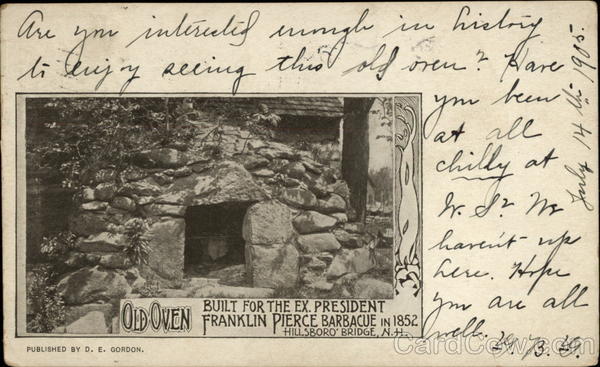 Are you interested enough in history
to enjoy seeing this old oven? Have
you been
at all
chilly at
W. St. We
haven't up
here. Hope
you are all
well. H. B. G.
July 14th 1905.
OLD OVEN
BUILT FOR THE EX. PRESIDENT
FRANKLIN PIERCE BARBACUE IN 1852
HILLSBORO' BRIDGE, N.H.
PUBLISHED BY D. E. GORDON.
CardCow.com